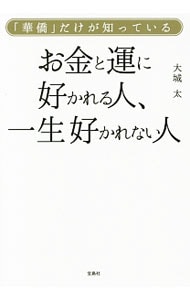 「華僑」だけが知っている
お金と運に
好かれる人、
一生好かれない人
大城 太
宝島社